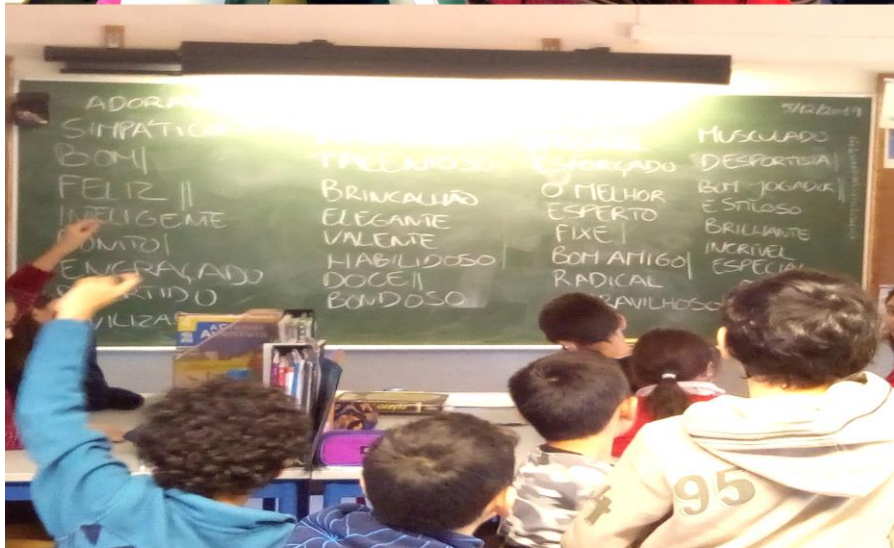 SIMPÁTICO
BOM|
FELIZ ||
INTELIGENTE
BONITO|
ENGRAÇADO
TALENTOSO
BRINCALHÃO
ELEGANTE
VALENTE
HABILIDOSO|
DOCE||
BONDOSO
ESFORÇADO
O MELHOR
ESPERTO
FIXE|
BOM AMIGO|
RADICAL
5/12/2019
MUSCULADO
DESPORTISTA|
BOM JOGADOR|
ESTILOSO
BRILHANTE
INCRÍVEL
ESPECIAL
95